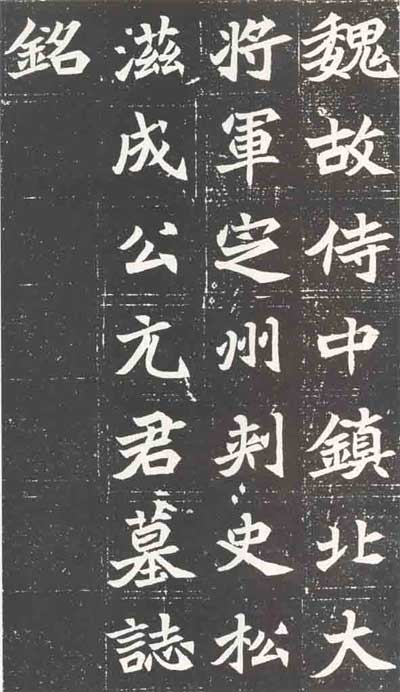 魏故侍中鎮北大
將軍定州刾史松
滋成公亢君墓誌
銘